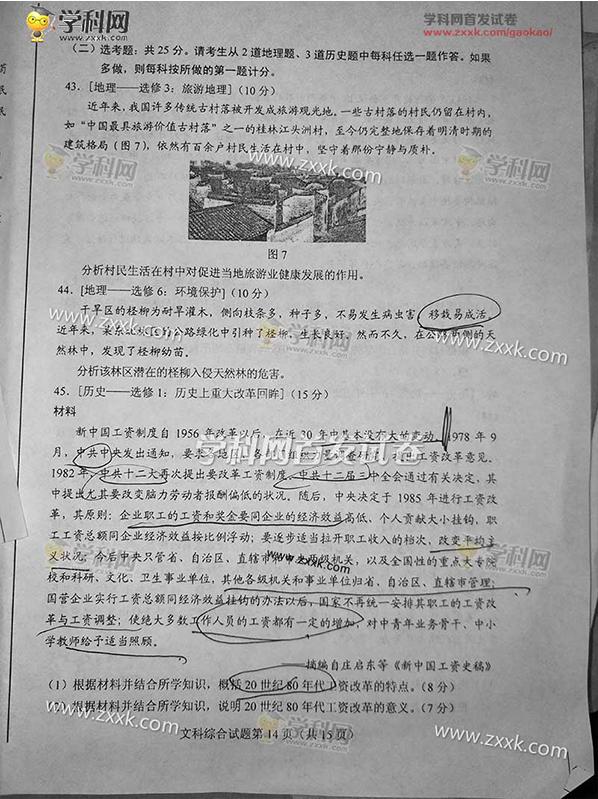 学科网
学科网首发试卷
www.zxxk.com/gaokao/
(二)选考题：共25分。请考生从2道地理题、3道历史题中每科任选一题作答。如果
多做，则每科按所做的第一题计分。
43. [地理——选修3：旅游地理] (10分)
近年来，我国许多传统古村落被开发成旅游观光地。一些古村落的村民仍留在村内，
如“中国最具旅游价值古村落”之一的桂林江头洲村，至今仍完整地保存着明清时期的
建筑格局(图7)，依然有百余户村民生活在村中，坚守着那份宁静与质朴。
图7
分析村民生活在村中对促进当地旅游业健康发展的作用。
44. [地理——选修6：环境保护] (10分)
干旱区的柽柳为耐旱灌木，侧向枝条多，种子多，不易发生病虫害，移栽易成活。
近年来，某东北林区的公路绿化中引种了柽柳，生长良好。然而不久，在公路两侧的天
然林中，发现了柽柳幼苗。
分析该林区潜在的柽柳入侵天然林的危害。
45. [历史——选修1：历史上重大改革回眸] (15分)
材料
新中国工资制度自1956年改革以后，在近30年中基本没有大的变动。1978年9
月，中共中央发出通知，要求 工资改革意见。
1982年，中共十二大再次提出要改革工资制度。中共十二届三中全会通过有关决定，其
中提出尤其要改变脑力劳动者报酬偏低的状况。随后，中央决定于1985年进行工资改
革，其原则：企业职工的工资和奖金要同企业的经济效益高低、个人贡献大小挂钩，职
工工资总额同企业经济效益按比例浮动；要逐步适当拉开职工收入的档次，改变平均主
义状况；今后中央只管省、自治区、直辖市 两级机关，以及全国性的重点大专院
校和科研、文化、卫生事业单位，其他各级机关和事业单位归省、自治区、直辖市管理；
国营企业实行工资总额同经济效益挂钩的办法以后，国家不再统一安排其职工的工资改
革与工资调整；使绝大多数工作人员的工资都有一定的增加，对中青年业务骨干、中小
学教师给予适当照顾。
——摘编自庄启东等《新中国工资史稿》
(1) 根据材料并结合所学知识，概括20世纪80年代工资改革的特点。(8分)
(2) 根据材料并结合所学知识，说明20世纪80年代工资改革的意义。(7分)
文科综合试题第14页(共15页)
学科网首发试卷
www.zxxk.com